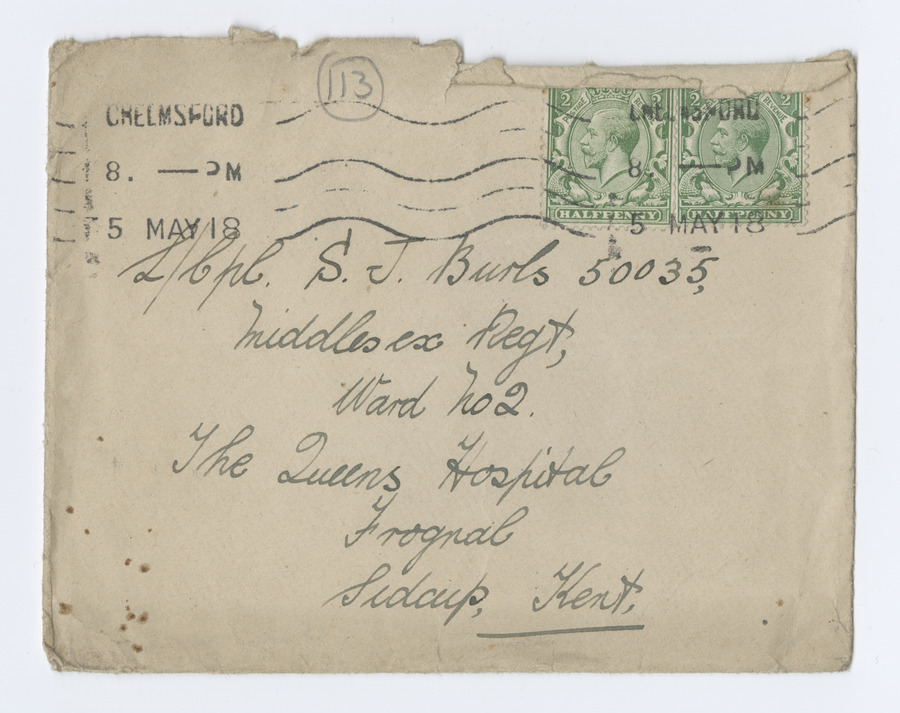 113
CHELMSFORD
8. — PM
5 MAY 18
CHELMSFORD
8. — PM
5 MAY 18
HALFPENNY HALFPENNY
L/Cpl. S. J. Burls 50035,
Middlesex Regt,
Ward No 2.
The Queens Hospital
Frognal
Sidcup, Kent.